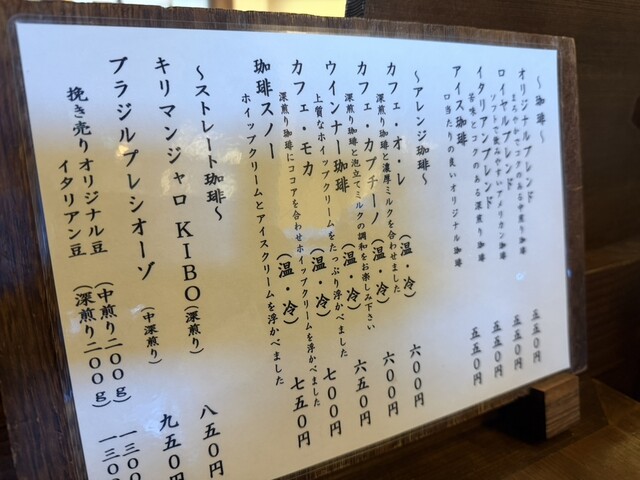 ～珈琲～
オリジナルブレンド 五五〇円
まろやかでコクのある中煎り珈琲
ロイヤルブレンド 五五〇円
ソフトで飲みやすいアメリカン珈琲
イタリアンブレンド 五五〇円
苦味とコクのある深煎り珈琲
アイス珈琲 五五〇円
口当たりの良いオリジナル珈琲
～アレンジ珈琲～
カフェ・オ・レ (温・冷) 六〇〇円
深煎り珈琲と濃厚ミルクを合わせました
カフェ・カプチーノ (温・冷) 六〇〇円
深煎り珈琲と泡立てミルクの調和をお楽しみ下さい
ウインナー珈琲 (温・冷) 六五〇円
上質なホイップクリームをたっぷり浮かべました
カフェ・モカ (温・冷) 七〇〇円
深煎り珈琲にココアを合わせホイップクリームを浮かべました
珈琲スノー 七五〇円
ホイップクリームとアイスクリームを浮かべました
～ストレート珈琲～
キリマンジャロ KIBO (深煎り) 八五〇円
ブラジルプレシオーゾ (中深煎り) 九五〇円
挽き売り オリジナル豆 (中煎り二〇〇g) 一三〇
イタリアン豆 (深煎り二〇〇g) 一三〇〇